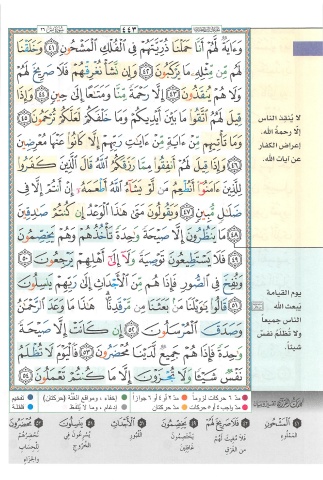 ٤٤٣
وَءَايَةٌ لَّهُمْ أَنَّا حَمَلْنَا ذُرِّيَّتَهُمْ فِى ٱلْفُلْكِ ٱلْمَشْحُونِ ٤١ وَخَلَقْنَا
لَهُم مِّن مِّثْلِهِۦ مَا يَرْكَبُونَ ٤٢ وَإِن نَّشَأْ نُغْرِقْهُمْ فَلَا صَرِيخَ لَهُمْ
وَلَا هُمْ يُنقَذُونَ ٤٣ إِلَّا رَحْمَةً مِّنَّا وَمَتَـٰعًا إِلَىٰ حِينٍ ٤٤ وَإِذَا
قِيلَ لَهُمُ ٱتَّقُوا۟ مَا بَيْنَ أَيْدِيكُمْ وَمَا خَلْفَكُمْ لَعَلَّكُمْ تُرْحَمُونَ ٤٥
وَمَا تَأْتِيهِم مِّنْ ءَايَةٍ مِّنْ ءَايَـٰتِ رَبِّهِمْ إِلَّا كَانُوا۟ عَنْهَا مُعْرِضِينَ
٤٦ وَإِذَا قِيلَ لَهُمْ أَنفِقُوا۟ مِمَّا رَزَقَكُمُ ٱللَّهُ قَالَ ٱلَّذِينَ كَفَرُوا۟
لِلَّذِينَ ءَامَنُوٓا۟ أَنُطْعِمُ مَن لَّوْ يَشَآءُ ٱللَّهُ أَطْعَمَهُۥٓ إِنْ أَنتُمْ إِلَّا فِى
ضَلَـٰلٍ مُّبِينٍ ٤٧ وَيَقُولُونَ مَتَىٰ هَـٰذَا ٱلْوَعْدُ إِن كُنتُمْ صَـٰدِقِينَ
٤٨ مَا يَنظُرُونَ إِلَّا صَيْحَةً وَٰحِدَةً تَأْخُذُهُمْ وَهُمْ يَخِصِّمُونَ
٤٩ فَلَا يَسْتَطِيعُونَ تَوْصِيَةً وَلَآ إِلَىٰٓ أَهْلِهِمْ يَرْجِعُونَ ٥٠
وَنُفِخَ فِى ٱلصُّورِ فَإِذَا هُم مِّنَ ٱلْأَجْدَاثِ إِلَىٰ رَبِّهِمْ يَنسِلُونَ
٥١ قَالُوا۟ يَـٰوَيْلَنَا مَنۢ بَعَثَنَا مِن مَّرْقَدِنَا ۜ هَـٰذَا مَا وَعَدَ ٱلرَّحْمَـٰنُ
وَصَدَقَ ٱلْمُرْسَلُونَ ٥٢ إِن كَانَتْ إِلَّا صَيْحَةً
وَٰحِدَةً فَإِذَا هُمْ جَمِيعٌ لَّدَيْنَا مُحْضَرُونَ ٥٣ فَٱلْيَوْمَ لَا تُظْلَمُ
نَفْسٌ شَيْـًٔا وَلَا تُجْزَوْنَ إِلَّا مَا كُنتُمْ تَعْمَلُونَ ٥٤
لا يُنقِذ الناس
إلّا رحمةُ الله،
إعراض الكفار
عن آيات الله.
يوم القيامة
يَبعث الله
الناس جميعاً
ولا تُظلَمُ نفسٌ
شيئاً.
مدّ ٦ حركات لزوماً
مدّ ٢ أو ٤ أو ٦ جوازاً
إخفاء، ومواقع الغُنَّة (حركتان)
تفخيم
مدّ واجب ٤ أو ٥ حركات
مدّ حركتان
إدغام، وما لا يُلفظ
قلقلة
٤١ المَشْحُونِ
المملوء
٤٣ فَلَا صَرِيخَ لَهُمْ
فلا مُغيثَ لهم
من الغرق
٤٩ يَخِصِّمُونَ
يختصمون
غافلين
٥١ الأَجْدَاثِ
القبور
٥١ يَنسِلُونَ
يُسرعون في
الخروج
٥٣ مُحْضَرُونَ
نُحضرهم
للحساب
والجزاء